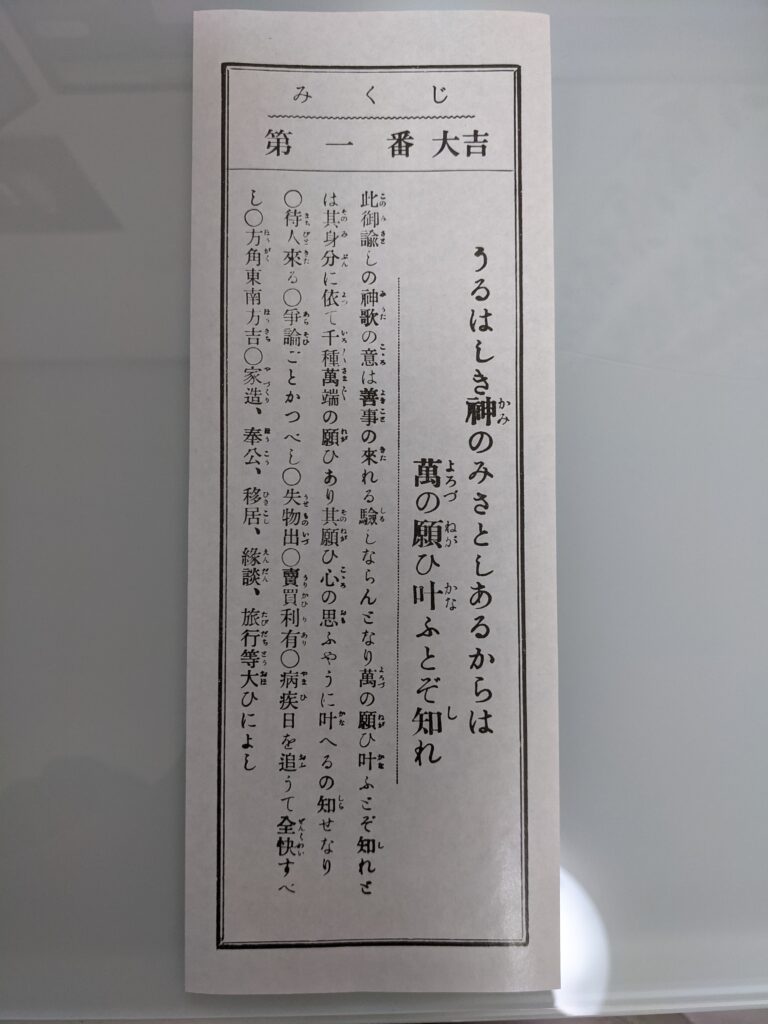 みくじ
第一番大吉
うるはしき神のみさとしあるからは
萬の願ひ叶ふとぞ知れ
此御諭しの神歌の意は善事の來れる驗しならんとなり萬の願ひ叶ふとぞ知れと
は其身分に依て千種萬端の願ひあり其願ひ心の思ふやうに叶へるの知せなり
〇待人來る〇爭論ごとかつべし〇失物出〇賣買利有〇病疾日を追うて全快すべ
し〇方角東南方吉〇家造、奉公、移居、緣談、旅行等大ひによし